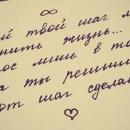 ∞
й твой шаг м
нить жизнь...
ос лишь в то
а ты решиш
от шаг сдела
♡